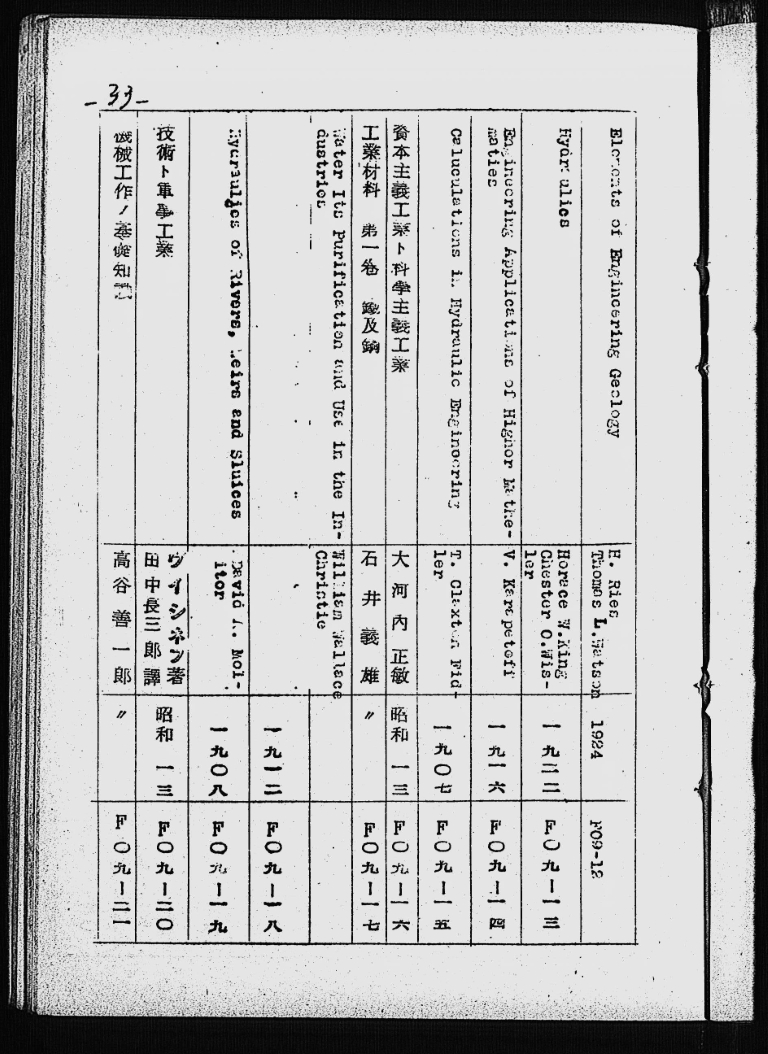 -33-
Elements of Engineering Geology
H. Ries
Thomas L.Watson
1924
F09-12
Hydraulics
Horace W.King
Chester O.Wis-
ler
一九二二
F〇九—一三
Engineering Applications of Highor Mathe-
maties
V. Karapetoff
一九一六
F〇九—一四
Caluculations in Hydraulic Enginoering
T. Claxton Fid-
ler
一九〇七
F〇九—一五
資本主義工業ト科學主義工業
大河內正敏
昭和一三
F〇九—一六
工業材料 第一卷 鐵及鋼
石井義雄
〃
F〇九—一七
Water Its Purification and Use in the In-
dustries
William Wallace
Christie
一九一二
F〇九—一八
Hydraulics of Rivers, Weirs and Sluices
David A. Mol-
itor
一九〇八
F〇九—一九
技術ト軍事工業
ウイシネフ著
田中長三郎譯
昭和一三
F〇九—二〇
機械工作ノ基礎知識
高谷善一郎
〃
F〇九—二一